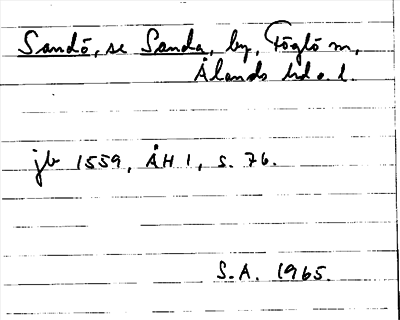 Sandö, se Sanda, by, Föglö sn,
Ålands hd o. l.
jb 1559, ÅH 1, s. 76.
S.A. 1965.